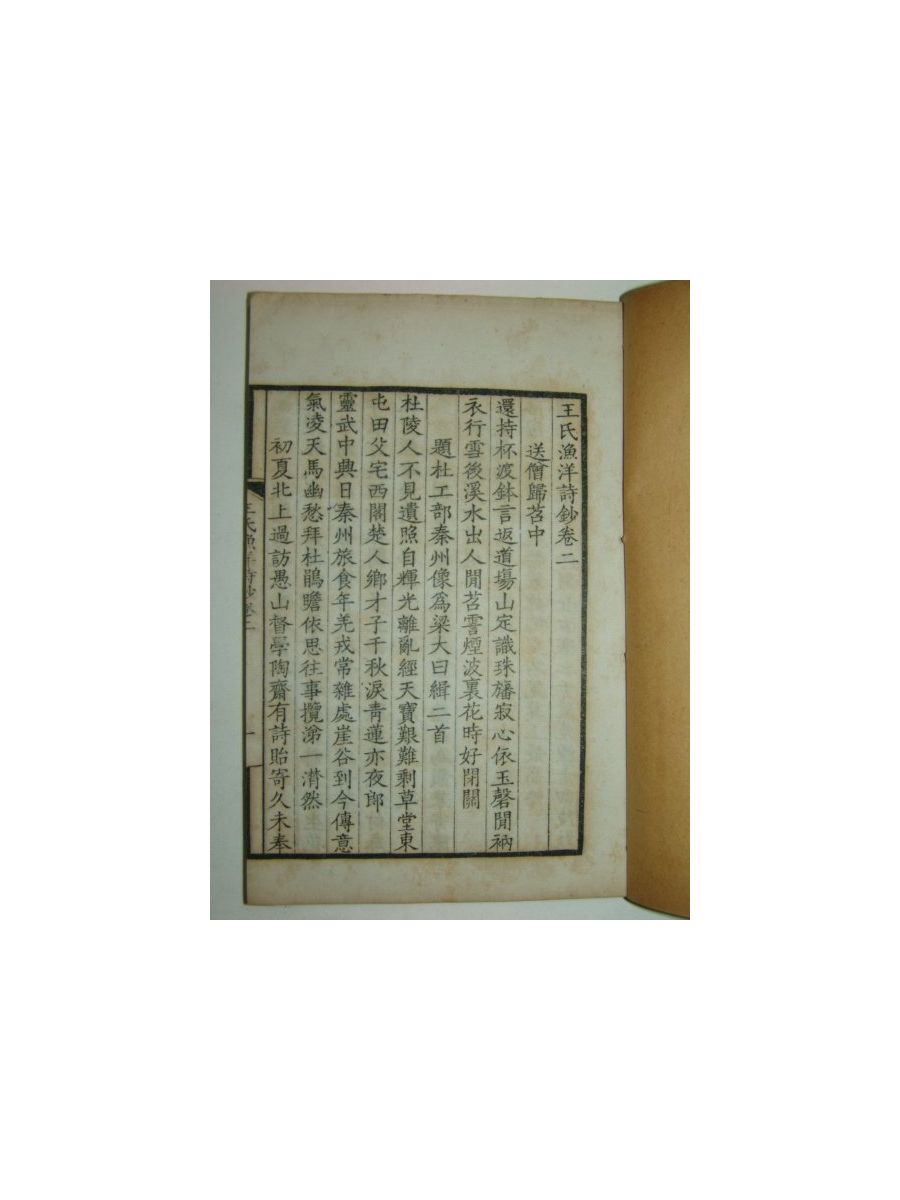 王氏漁洋詩鈔卷二
送僧歸苕中
還持杯渡鉢言返道場山定識珠旛寂心依玉磬閒衲
衣行雲後溪水出人閒苕霅煙波裏花時好閉關
題杜工部秦州像爲梁大曰緝二首
杜陵人不見遺照自輝光離亂經天寶艱難剩草堂東
屯田父宅西閣楚人鄉才子千秋淚靑蓮亦夜郎
靈武中興日秦州旅食年羌戎常雜處崖谷到今傳意
氣凌天馬幽愁拜杜鵑瞻依思往事攬涕一潸然
初夏北上過訪愚山督學陶齋有詩貽寄久未奉
王氏漁洋詩鈔卷二
一